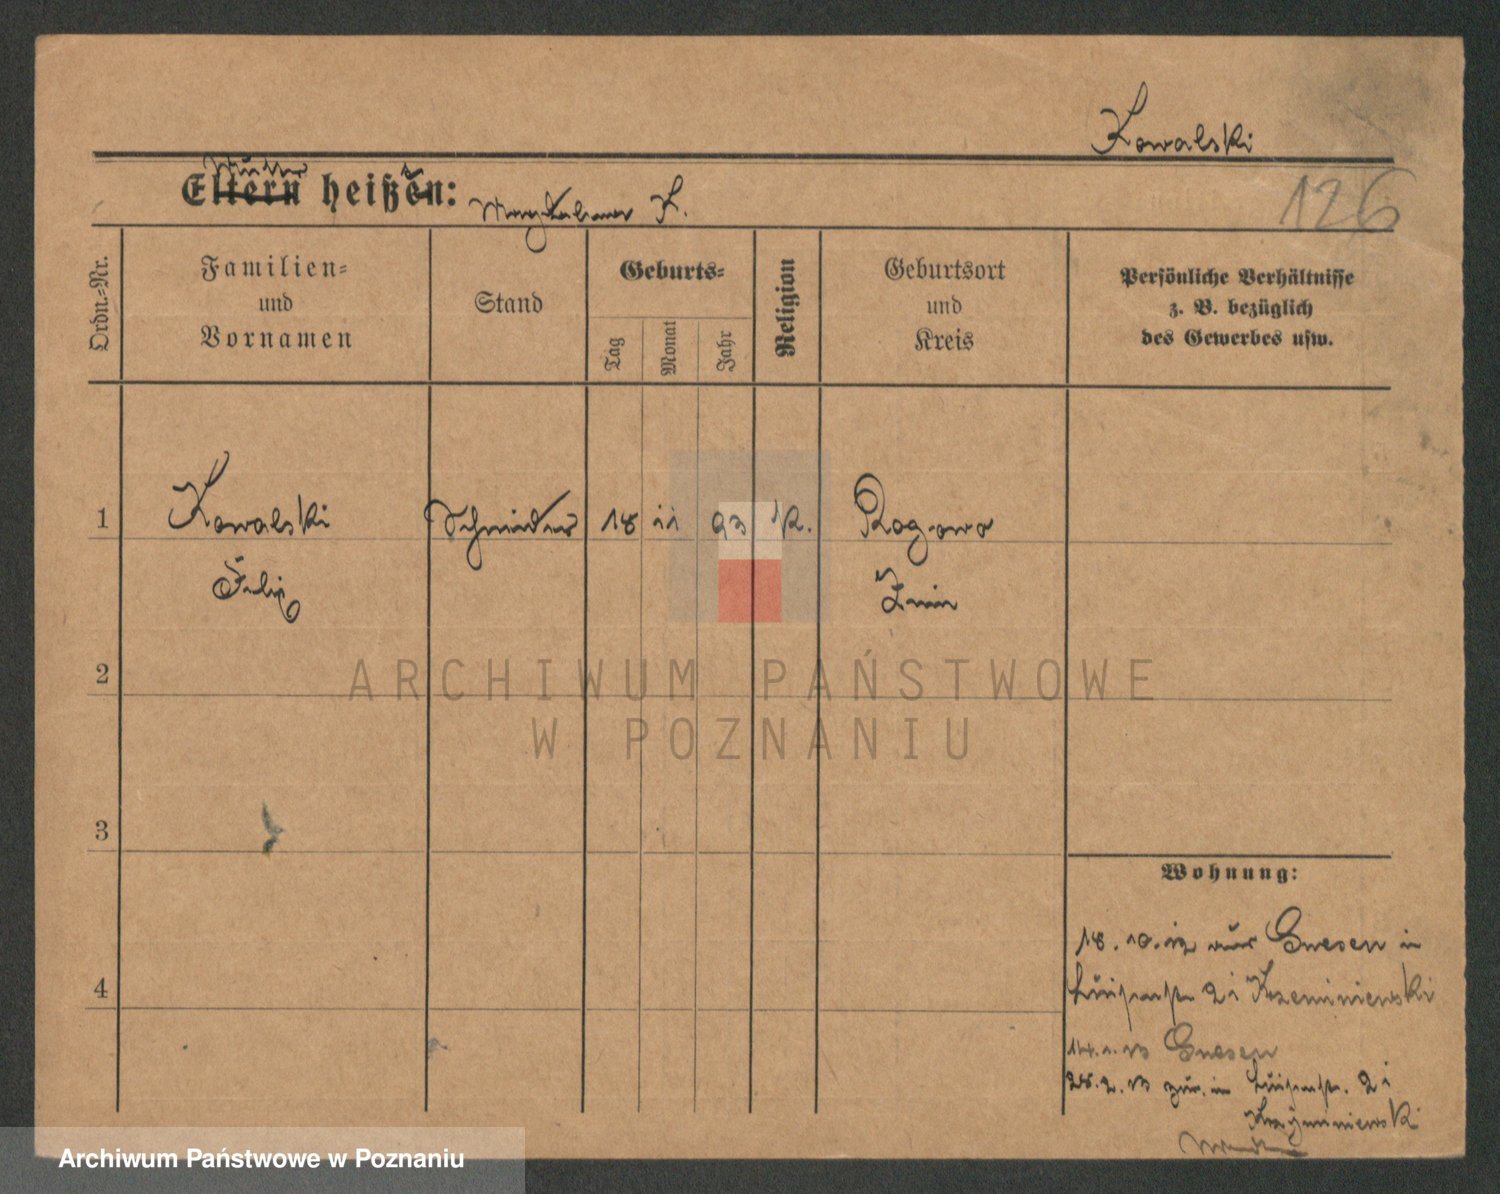 Kowalski
Mutter
Eltern heißen: Magdalena K.
126
Ordn.-Nr.
Familien-
und
Vornamen
Stand
Geburts-
Tag
Monat
Jahr
Religion
Geburtsort
und
Kreis
Persönliche Verhältnisse
z. B. bezüglich
des Gewerbes usw.
1 Kowalski Schneider 18 11 93 K. Rogowo
Felix Znin
2
3
4
Wohnung:
18.10.12 aus Gnesen in
Luisenstr 21 Krzeminiewski
14.1.13 Gnesen
25.2.13 zur. in Luisenstr. 21
ARCHIWUM PAŃSTWOWE
W POZNANIU
Archiwum Państwowe w Poznaniu